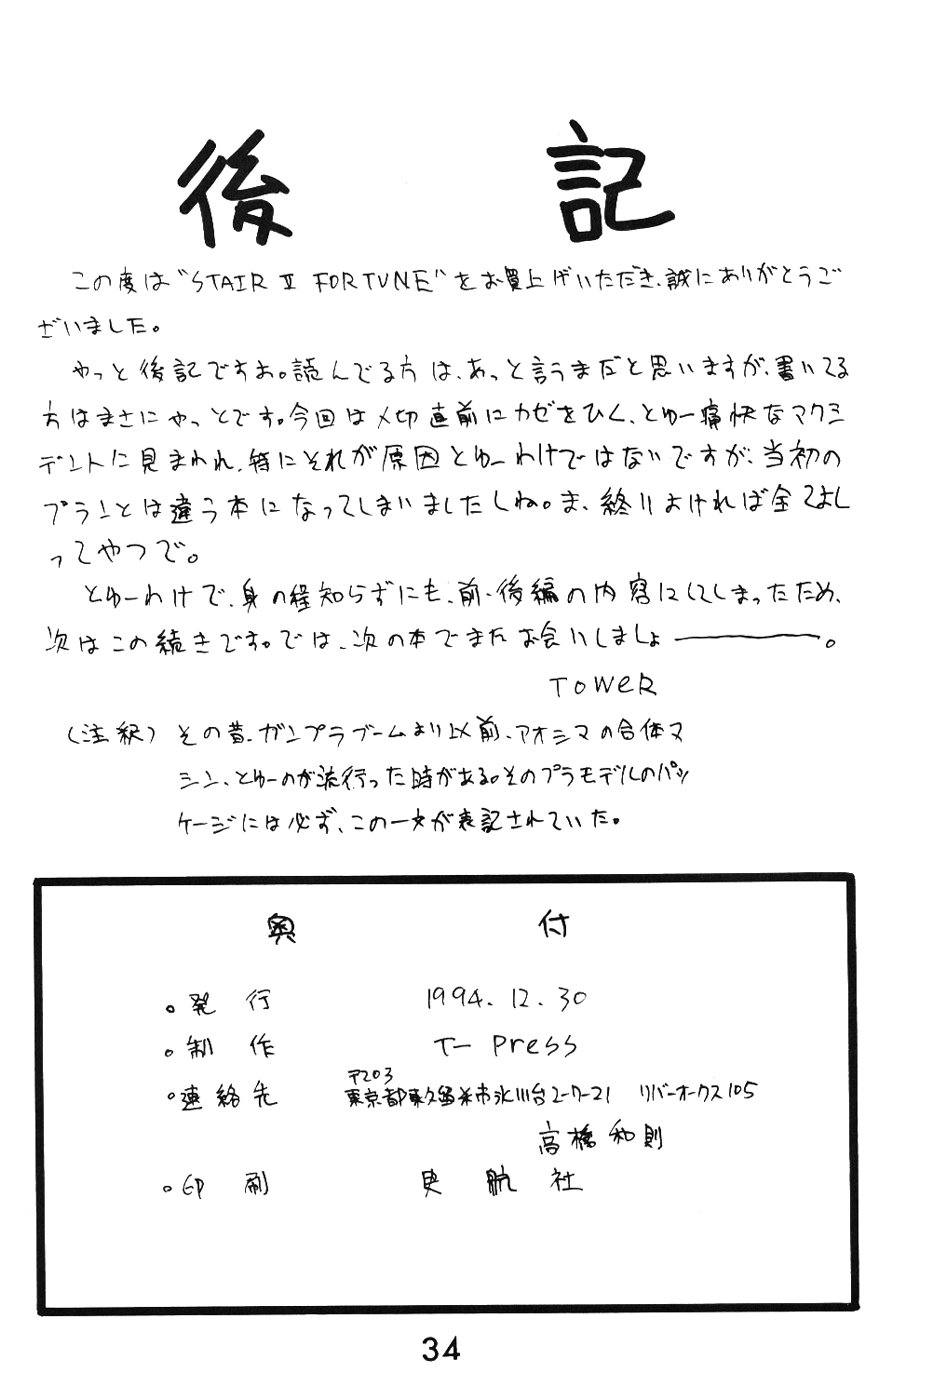 後記
この度は"STAIR Ⅱ FORTUNE"をお買上げいただき、誠にありがとうご
ざいました。
やっと後記ですぉ。読んでる方は、あっと言うまだと思いますが、書いてる
方はまさにやっとです。今回は〆切直前にカゼをひく、とゆー痛快なアクシ
デントに見まわれ、特にそれが原因とゆーわけではないですが、当初の
プランとは違う本になってしまいましたしね。ま、終りよければ全てよし
ってやつで。
とゆーわけで、身の程知らずにも、前・後編の内容にしてしまったため、
次はこの続きです。では、次の本でまたお会いしましょ――――。
TOWER
(注釈) その昔、ガンプラブームより以前、アオシマの合体マ
シン、とゆーのが流行った時がある。そのプラモデルのパッ
ケージには必ず、この一文が表記されていた。
奥付
。発行 1994.12.30
。制作 T-Press
〒203
。連絡先 東京都東久留米市氷川台2-7-21 リバーオークス105
高橋和則
。印刷 史航社
34